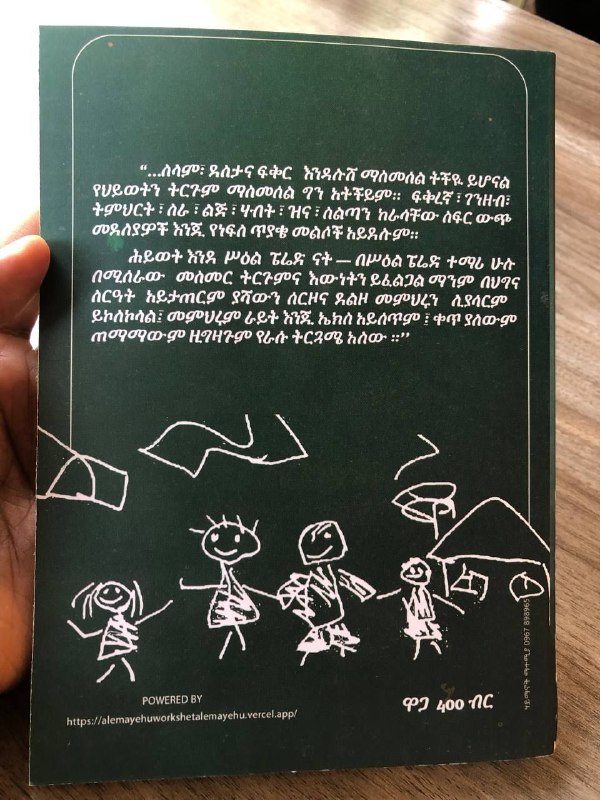 “...ሰላም፣ ደስታና ፍቅር እንዳሉሽ ማስመሰል ትችዪ ይሆናል
የህይወትን ትርጉም ማስመሰል ግን አትችይም። ፍቅረኛ ፣ ገንዘብ፣
ትምህርት ፣ ስራ ፣ ልጅ ፣ ሃብት ፣ ዝና ፣ ስልጣን ከራሳቸው ሰፍር ውጭ
መዳሰያዎች እንጂ የነፍስ ጥያቄ መልሶች አይደሉም።
ሕይወት እንደ ሥዕል ፔሬድ ናት — በሥዕል ፔሬድ ተማሪ ሁሉ
በሚሰራው መስመር ትርጉምና እውነትን ይፈልጋል ማንም በህግና
ስርዓት አይታጠርም ያሻውን ሰርዞና ደልዞ መምህሩን ሊያሳርም
ይኮሰኩሳል፤ መምህሩም ራይት እንጂ ኤክስ አይሰጥም ፤ ቀጥ ያለውም
ጠማማውም ዚግዛጉም የራሱ ትርጓሜ አለው ።”
POWERED BY
https://alemayehuworkshetalemayehu.vercel.app/
ዋጋ 400 ብር